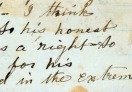 I think
to his honest
s a right to
for his
d in the extrem